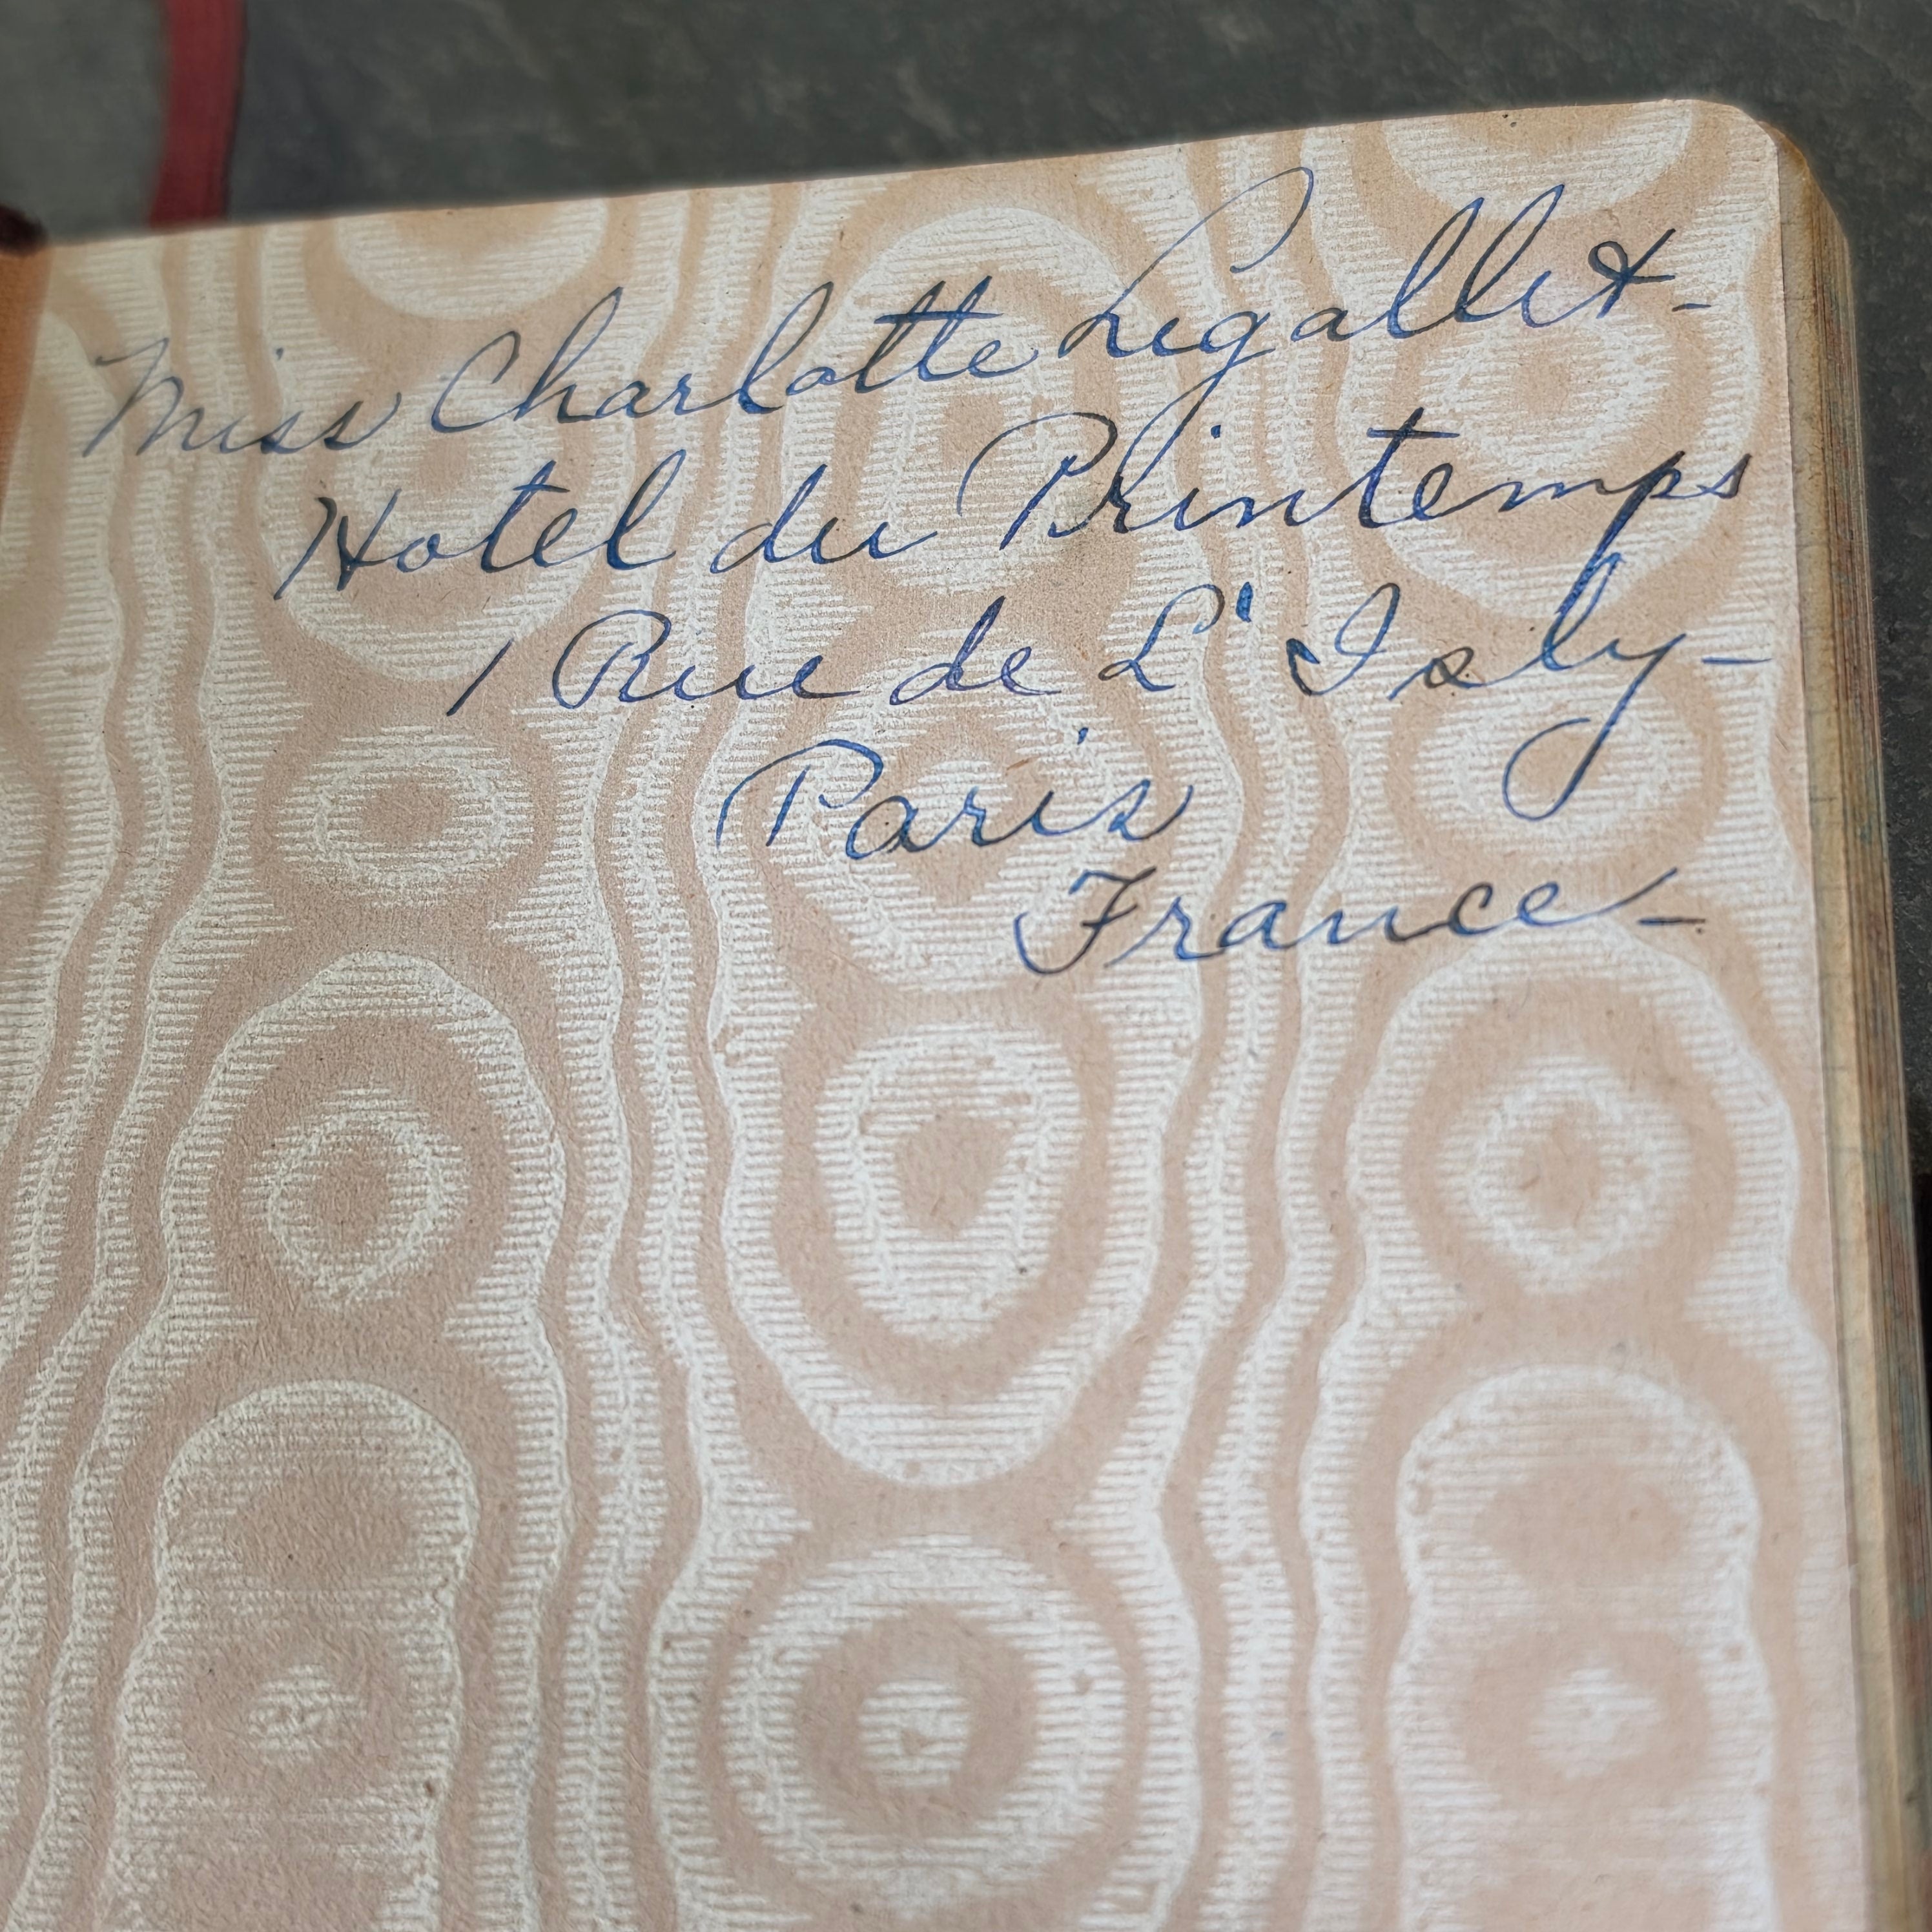 Miss Charlotte Legallet-
Hotel du Printemps
1 Rue de L' Isly-
Paris
France-